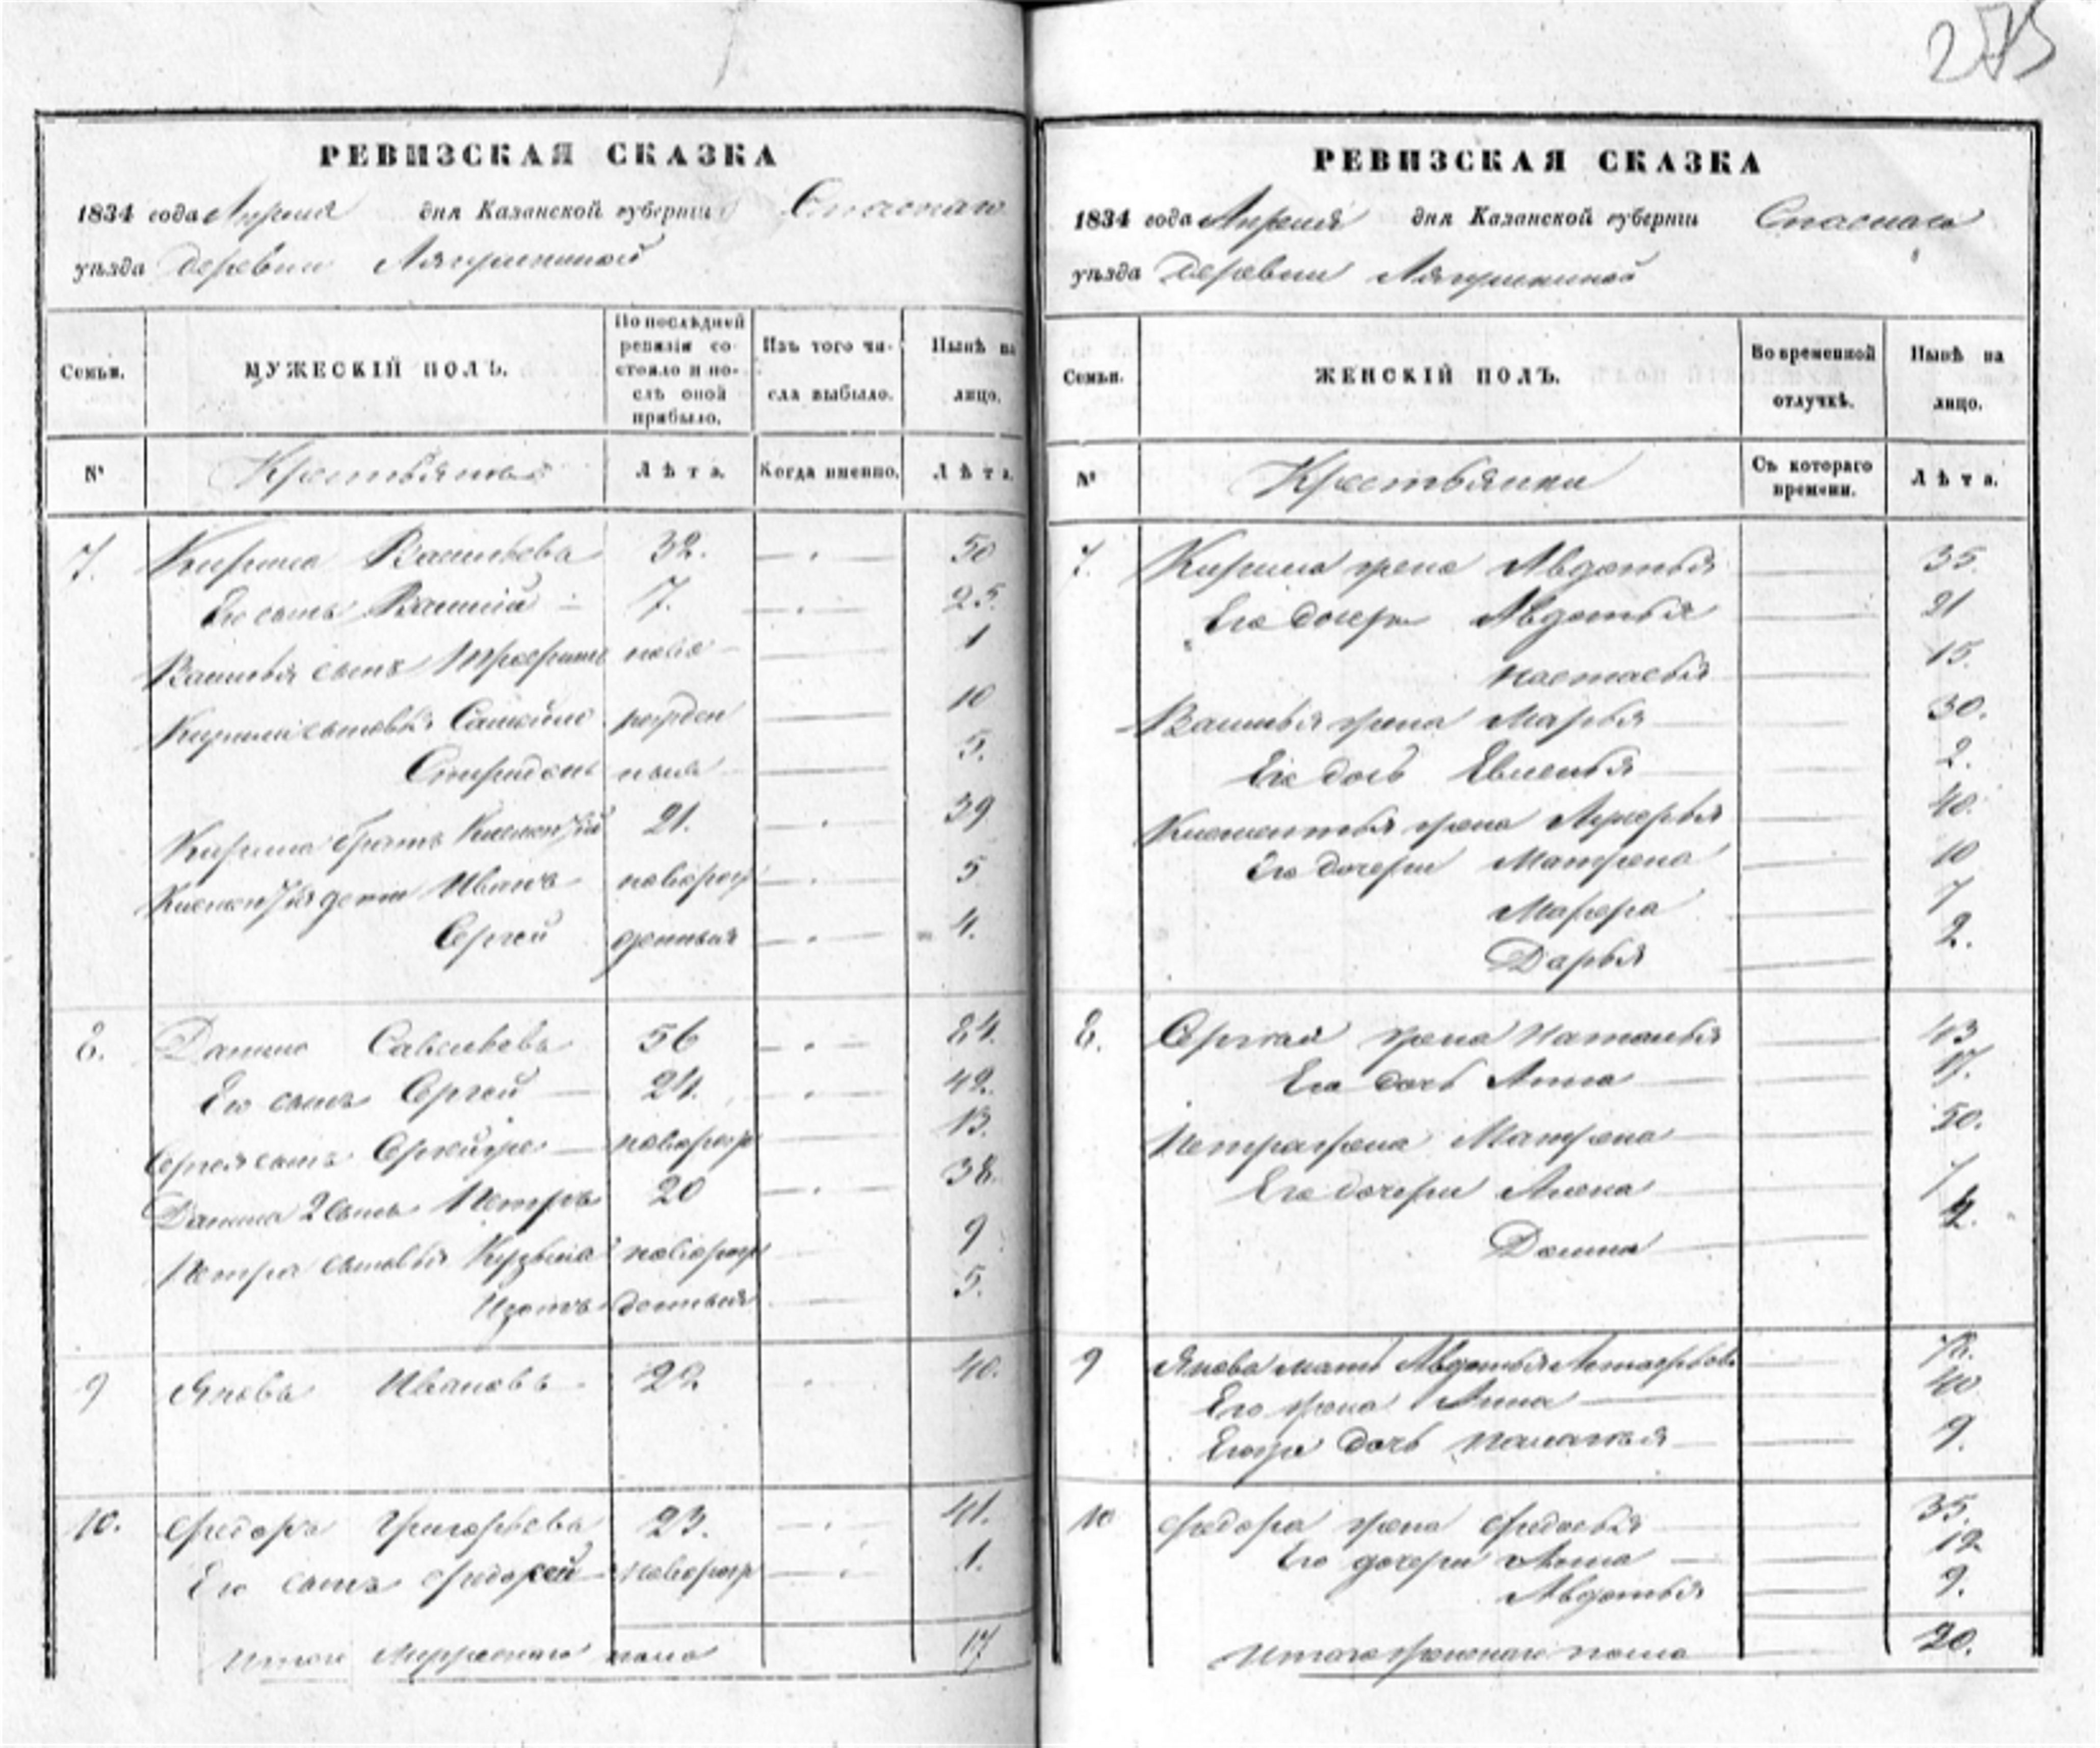 275
РЕВИЗСКАЯ СКАЗКА
1834 года Апреля дня Казанской губерніи Спаскаго
уѣзда деревни
Семьи.
МУЖЕСКІЙ ПОЛЪ.
По послѣдней ревизіи состояло и послѣ оной прибыло.
Изъ того числа выбыло.
Нынѣ на лицо.
№
Крестьяне
Лѣта.
Когда именно.
Лѣта.
7. Кирила Васильевъ 32. 50
Его сынъ Василій 7. 25.
Васильья сынъ ново 1
Кирилы сыновья Самойло рожден 10
Спиридонъ ныя 5.
Кирила братъ Клементій 21. 39
Клементья дети Иванъ новорож 5
Сергей денныя 4.
8. Данило Савельевъ 56 84.
Его сынъ Сергей 24. 42.
Сергея сынъ Сергейже новорож 13.
Данила 2 сынъ Петръ 20 38.
Петра сыновья Кузьма новорож 9
Изотъ денныя 5.
9 Яковъ Ивановъ 22 40.
10. Федоръ Григорьевъ 23. 41.
Его сынъ новорож 1.
Итого Мужескаго пола 17
РЕВИЗСКАЯ СКАЗКА
1834 года Апреля дня Казанской губерніи Спаскаго
уѣзда Деревни
Семьи.
ЖЕНСКІЙ ПОЛЪ.
Во временной отлучкѣ.
Нынѣ на лицо.
№
Крестьянки
Съ котораго времени.
Лѣта.
7. Кирила жена Авдотья 35.
Его дочери Авдотья 21
Настасья 15.
Васильья жена Марья 30.
Его дочь 2.
Клементья жена 40.
Его дочери Матрена 10
Марфа 7
Дарья 2.
8. Сергея жена Наталья 43
Его дочь Анна 17.
Петра жена Матрена 50.
Его дочери Алена 7
Домна
9 Якова мать Авдотья
Его жена Анна 40
Егоже дочь Палагья 9.
10 Федора жена Федосья 35.
Его дочери Анна 12
Авдотья 9.
Итого женскаго пола 20.